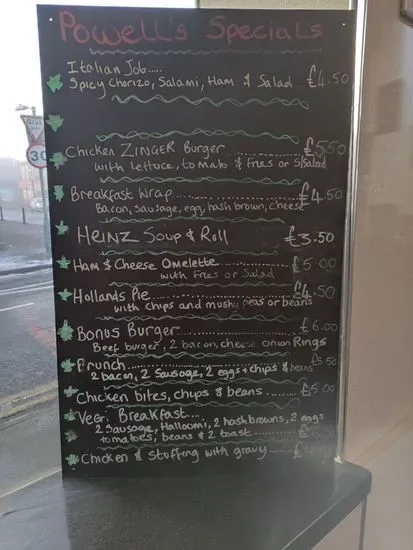 Powell's Specials
Italian Job.....
Spicy Chorizo, Salami, Ham & Salad £4.50
Chicken ZINGER Burger............ £5.50
with lettuce, tomato & Fries or Salad
Breakfast Wrap.................... £4.50
Bacon, Sausage, egg, hash brown, cheese
HEINZ Soup & Roll £3.50
Ham & Cheese Omelette............ £5.00
with Fries or Salad
Hollands Pie........................ £4.50
with chips and mushy peas or beans
Bonus Burger...................... £6.00
Beef burger, 2 bacon, cheese onion Rings
Brunch............................ £5.50
2 bacon, 2 Sausage, 2 eggs & chips & beans
Chicken bites, chips & beans ........ £5.00
Vegi Breakfast....
2 Sausage, Halloumi, 2 hash browns, 2 eggs
tomatoes, beans & 2 toast
Chicken & Stuffing with gravy ......
30